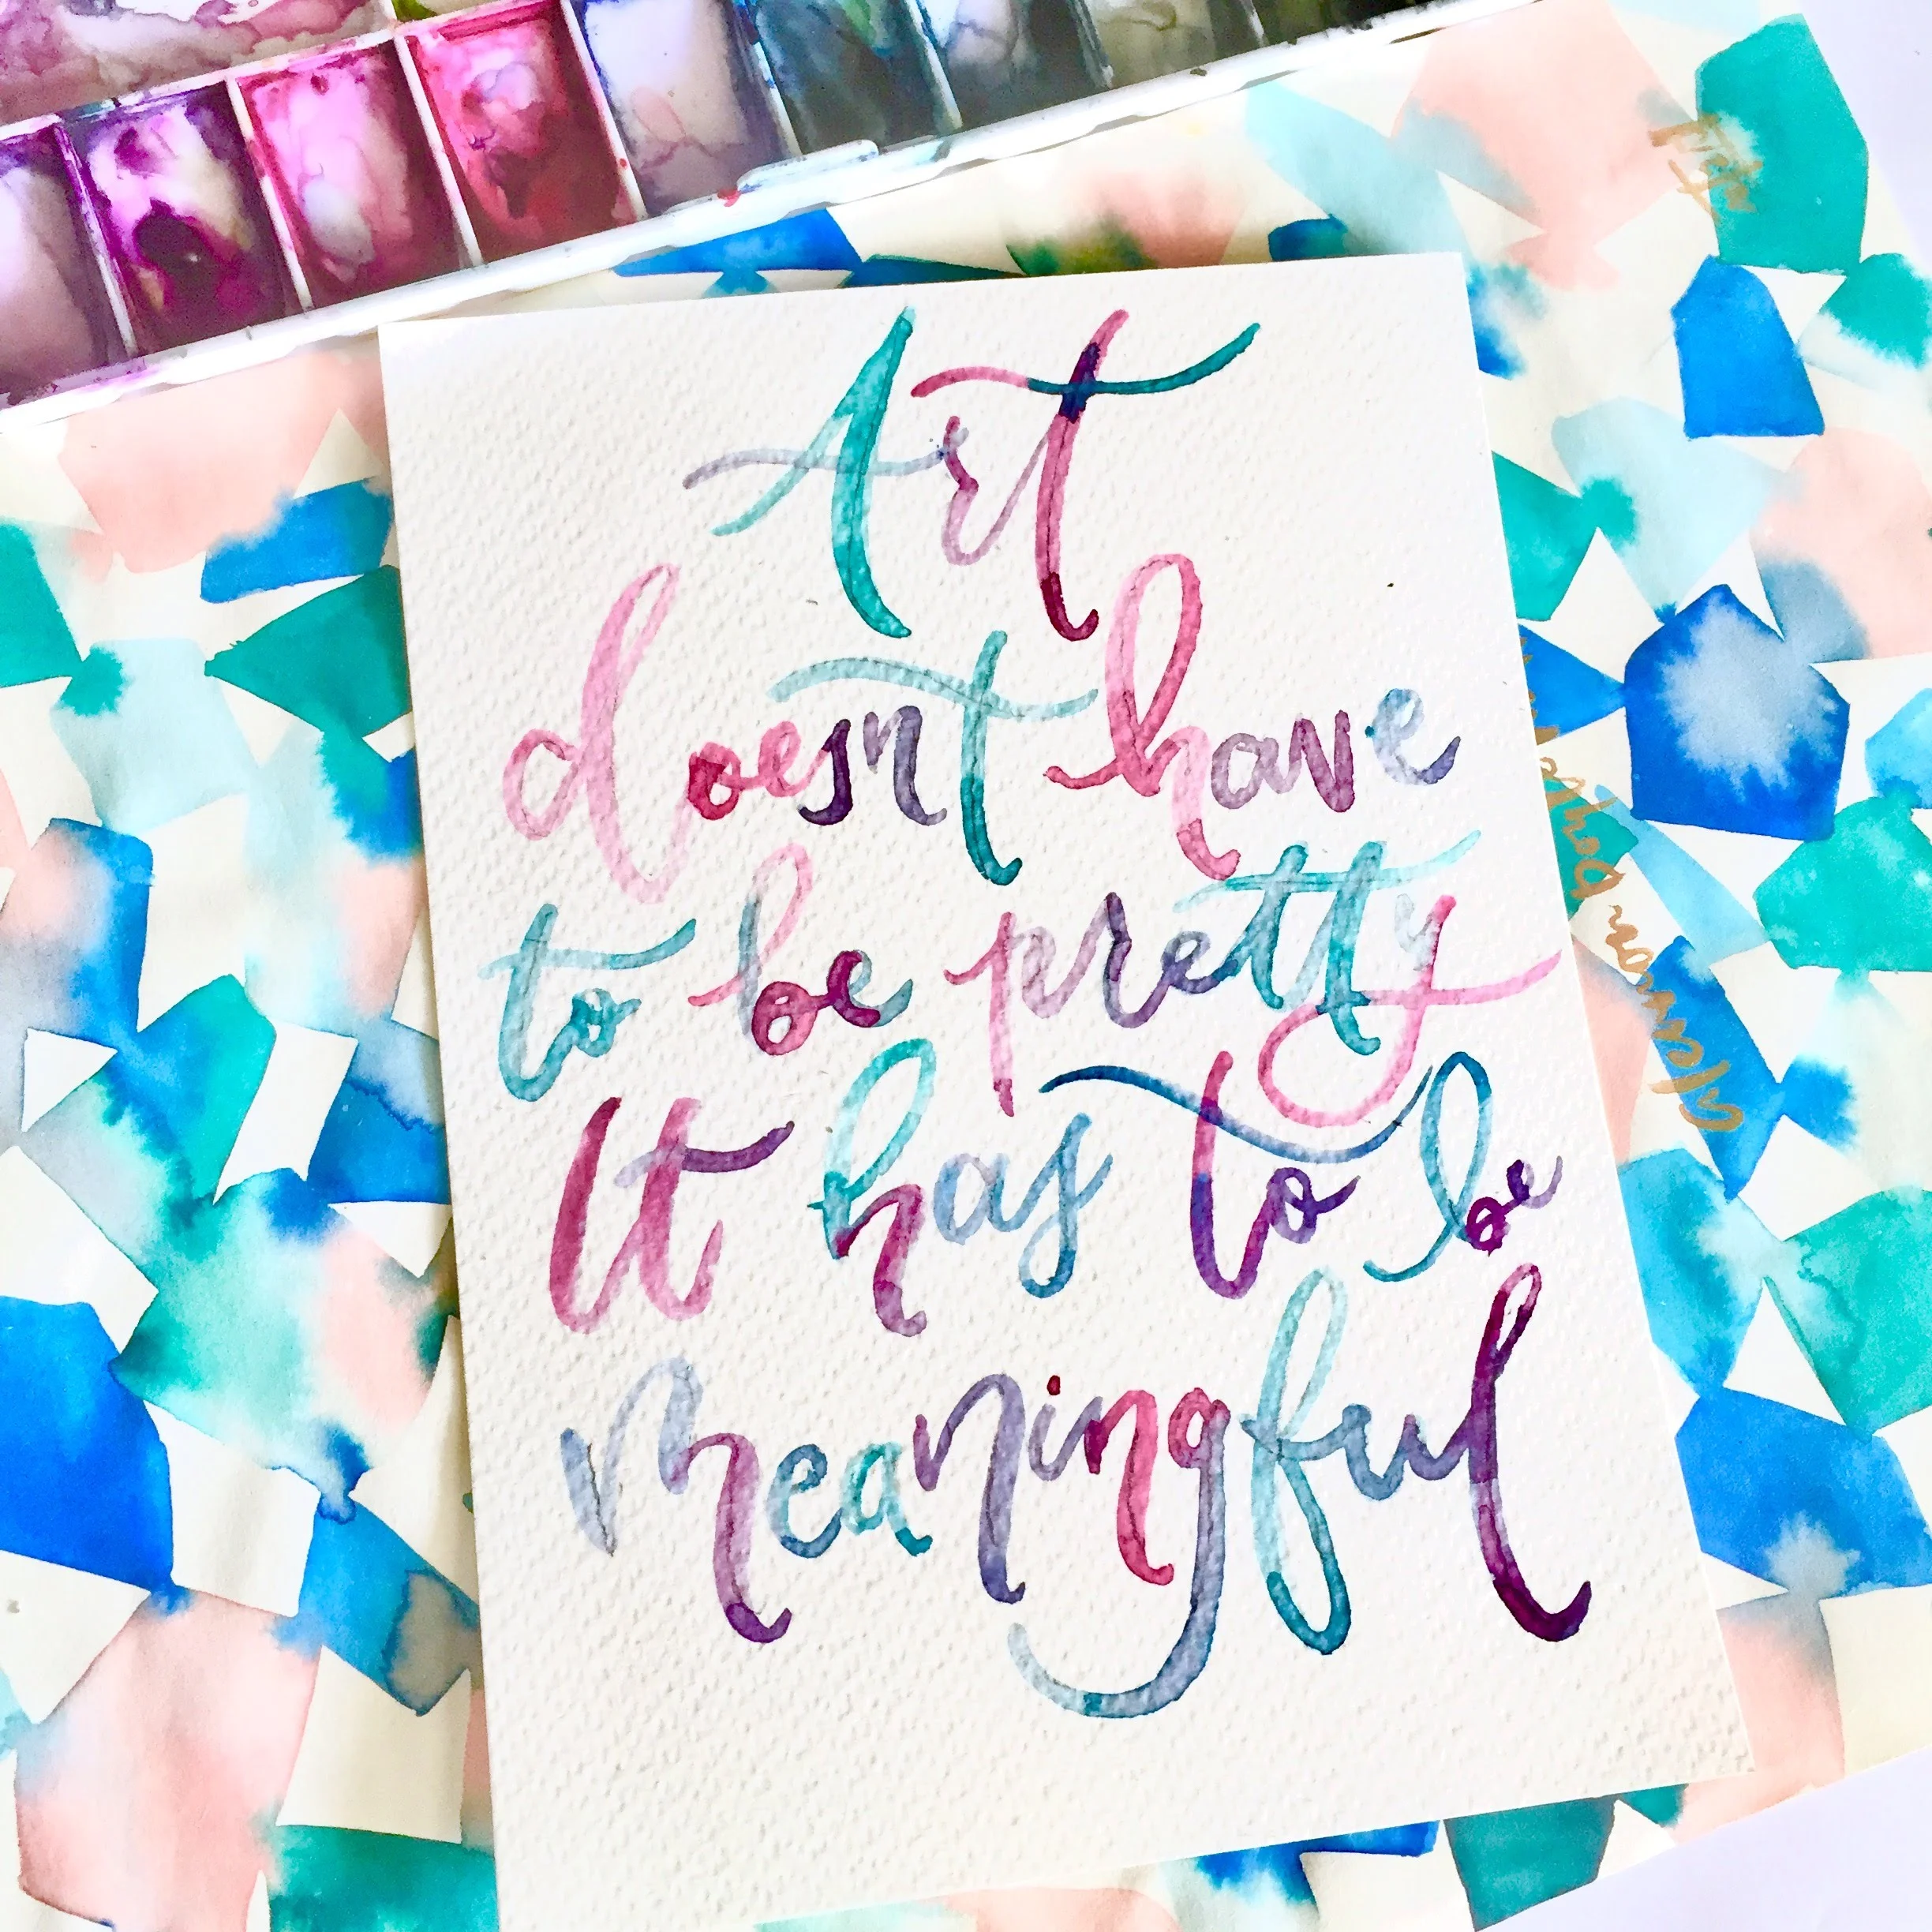 Art
doesn't have
to be pretty
It has to be
meaningful